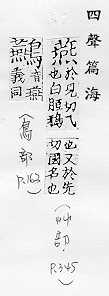 四聲篇海
燕 於見切乙也又於先
也白脰鴉切國名也
(艸部 P.345)
䴏 音燕義同
(鳥部 P.162)